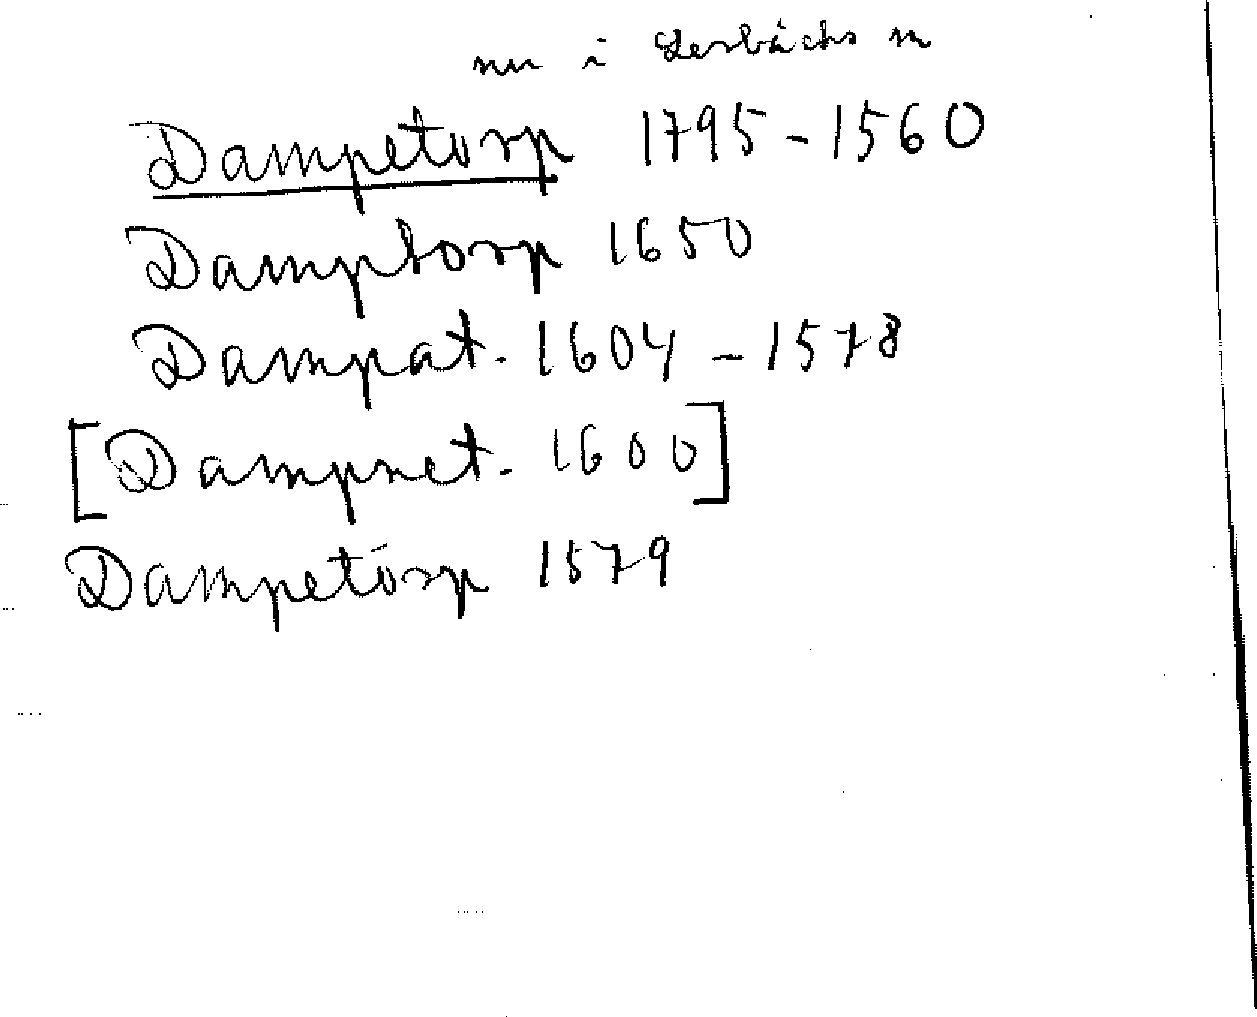 nu i Lerbäcks sn
Dampetorp 1795-1560
Damptorp 1650
Dampat. 1604 - 1578
[Dampnet. 1600]
Dampetorp 1579